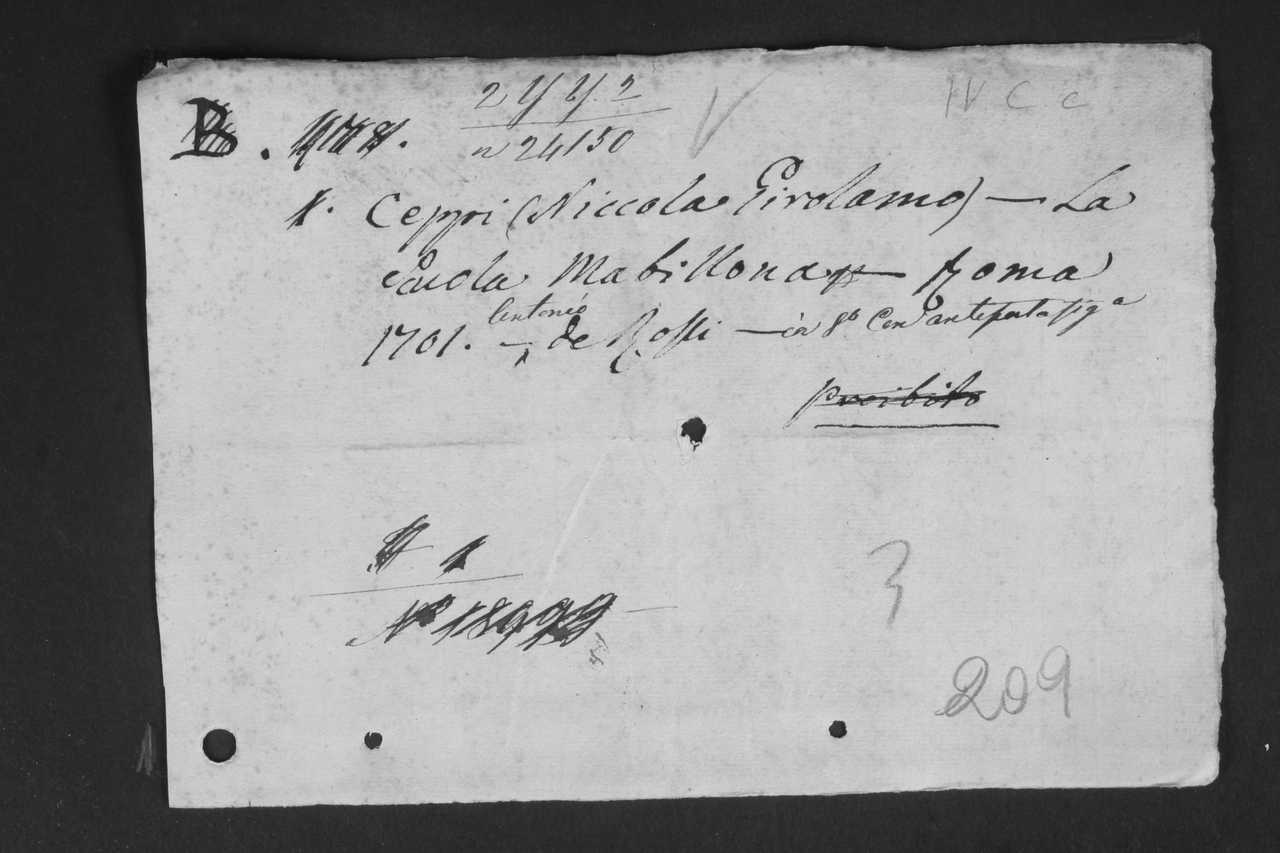 2 Y Y. 2
IV C c
B.
n 24150
1. Ceppi (Niccola Girolamo) — La
Scuola Mabillona — Roma
1701. — Antonio de Rossi — in 8° Con antiporta fig.a
proibito
1
N° 18999
3
209